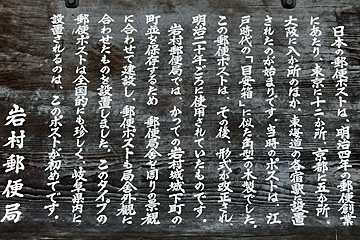 日本の郵便ポストは、明治四年の郵便創業
にあたり、東京に十二か所、京都に五か所、
大阪に八か所のほか、東海道の各宿駅に設置
されたのが始まりです。当時のポストは、江
戸時代の「目安箱」に似た角型の木製でした。
この郵便ポストは、その後、形式が改正され、
明治二十年ごろに使用されていたものです。
岩村郵便局では、かつての岩村城城下町の
町並を保存するため、郵便局舎を囲りの景観
に合わせて建設し、郵便ポストも局舎外観に
合わせたものを設置しました。このタイプの
郵便ポストは全国的にも珍しく、岐阜県内に
設置されるのは、このポストが初めてです。
岩村郵便局